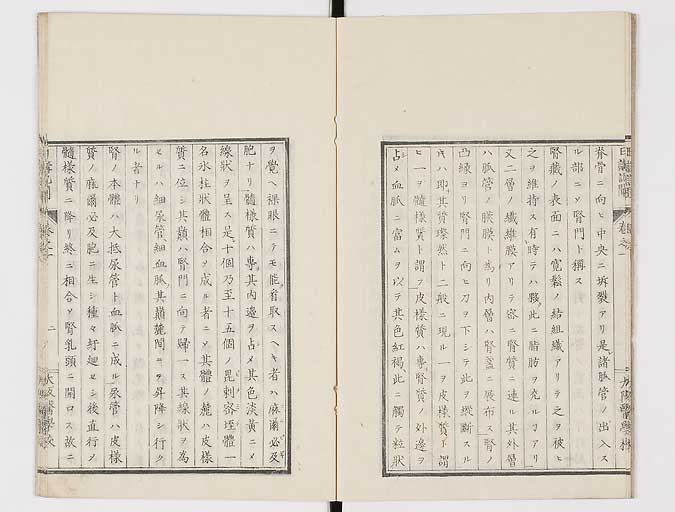 脊骨ニ向ヒ中央ニ坼裂アリ是諸脈管ノ出入ス
ル部ニソ腎門ト稱ス
腎臓ノ表面ニハ寛鬆ノ結組織アリテ之ヲ被ヒ
之ヲ維持ス有時テハ夥シ此ニ脂肪ヲ充ルヿアリ
又二層ノ纖維膜アリテ密ニ腎質ニ連ル其外層
ハ脈管ノ膜ト為リ内層ハ腎盂ニ蔓布ス腎ノ
凸縁ヨリ腎門ニ向ヒ刀ヲ下シテ此ヲ縦斷スル
キハ即其質璨然ト二般ニ現ル一ヲ皮様質ト謂
ヒ一ヲ髓様質ト謂フ皮様質ハ專腎質ノ外邊ヲ
占メ血脈ニ富ムヲ以テ其色紅褐此ニ觸テ粒状
ヲ覺ヘ裸眼ニテモ能看取スヘキ者ハ麻爾必及
胞ナリ髓様質ハ專其内邊ヲ占メ其色淡黄ニメ
線状ヲ呈ス是十個乃至十五個ノ毘剌密埕體一
名氷柱状體相合ソ成ル者ニソ其體ノ麓ハ皮様
質ニ位シ其巓ハ腎門ニ向テ歸一ス其線状ヲ為
セルハ細尿管細血脈其巓麓間ニソ昇降シ行ク
ル者ナリ
腎ノ本體ハ大抵尿管ト血脈ニ成ル尿管ハ皮様
質ノ麻爾必及胞ニ生シ種々紆廻セシ後直行ソ
髓様質ニ降リ終ニ相合ソ腎乳頭ニ開口ス故ニ
卷之一
二
大阪醫學校